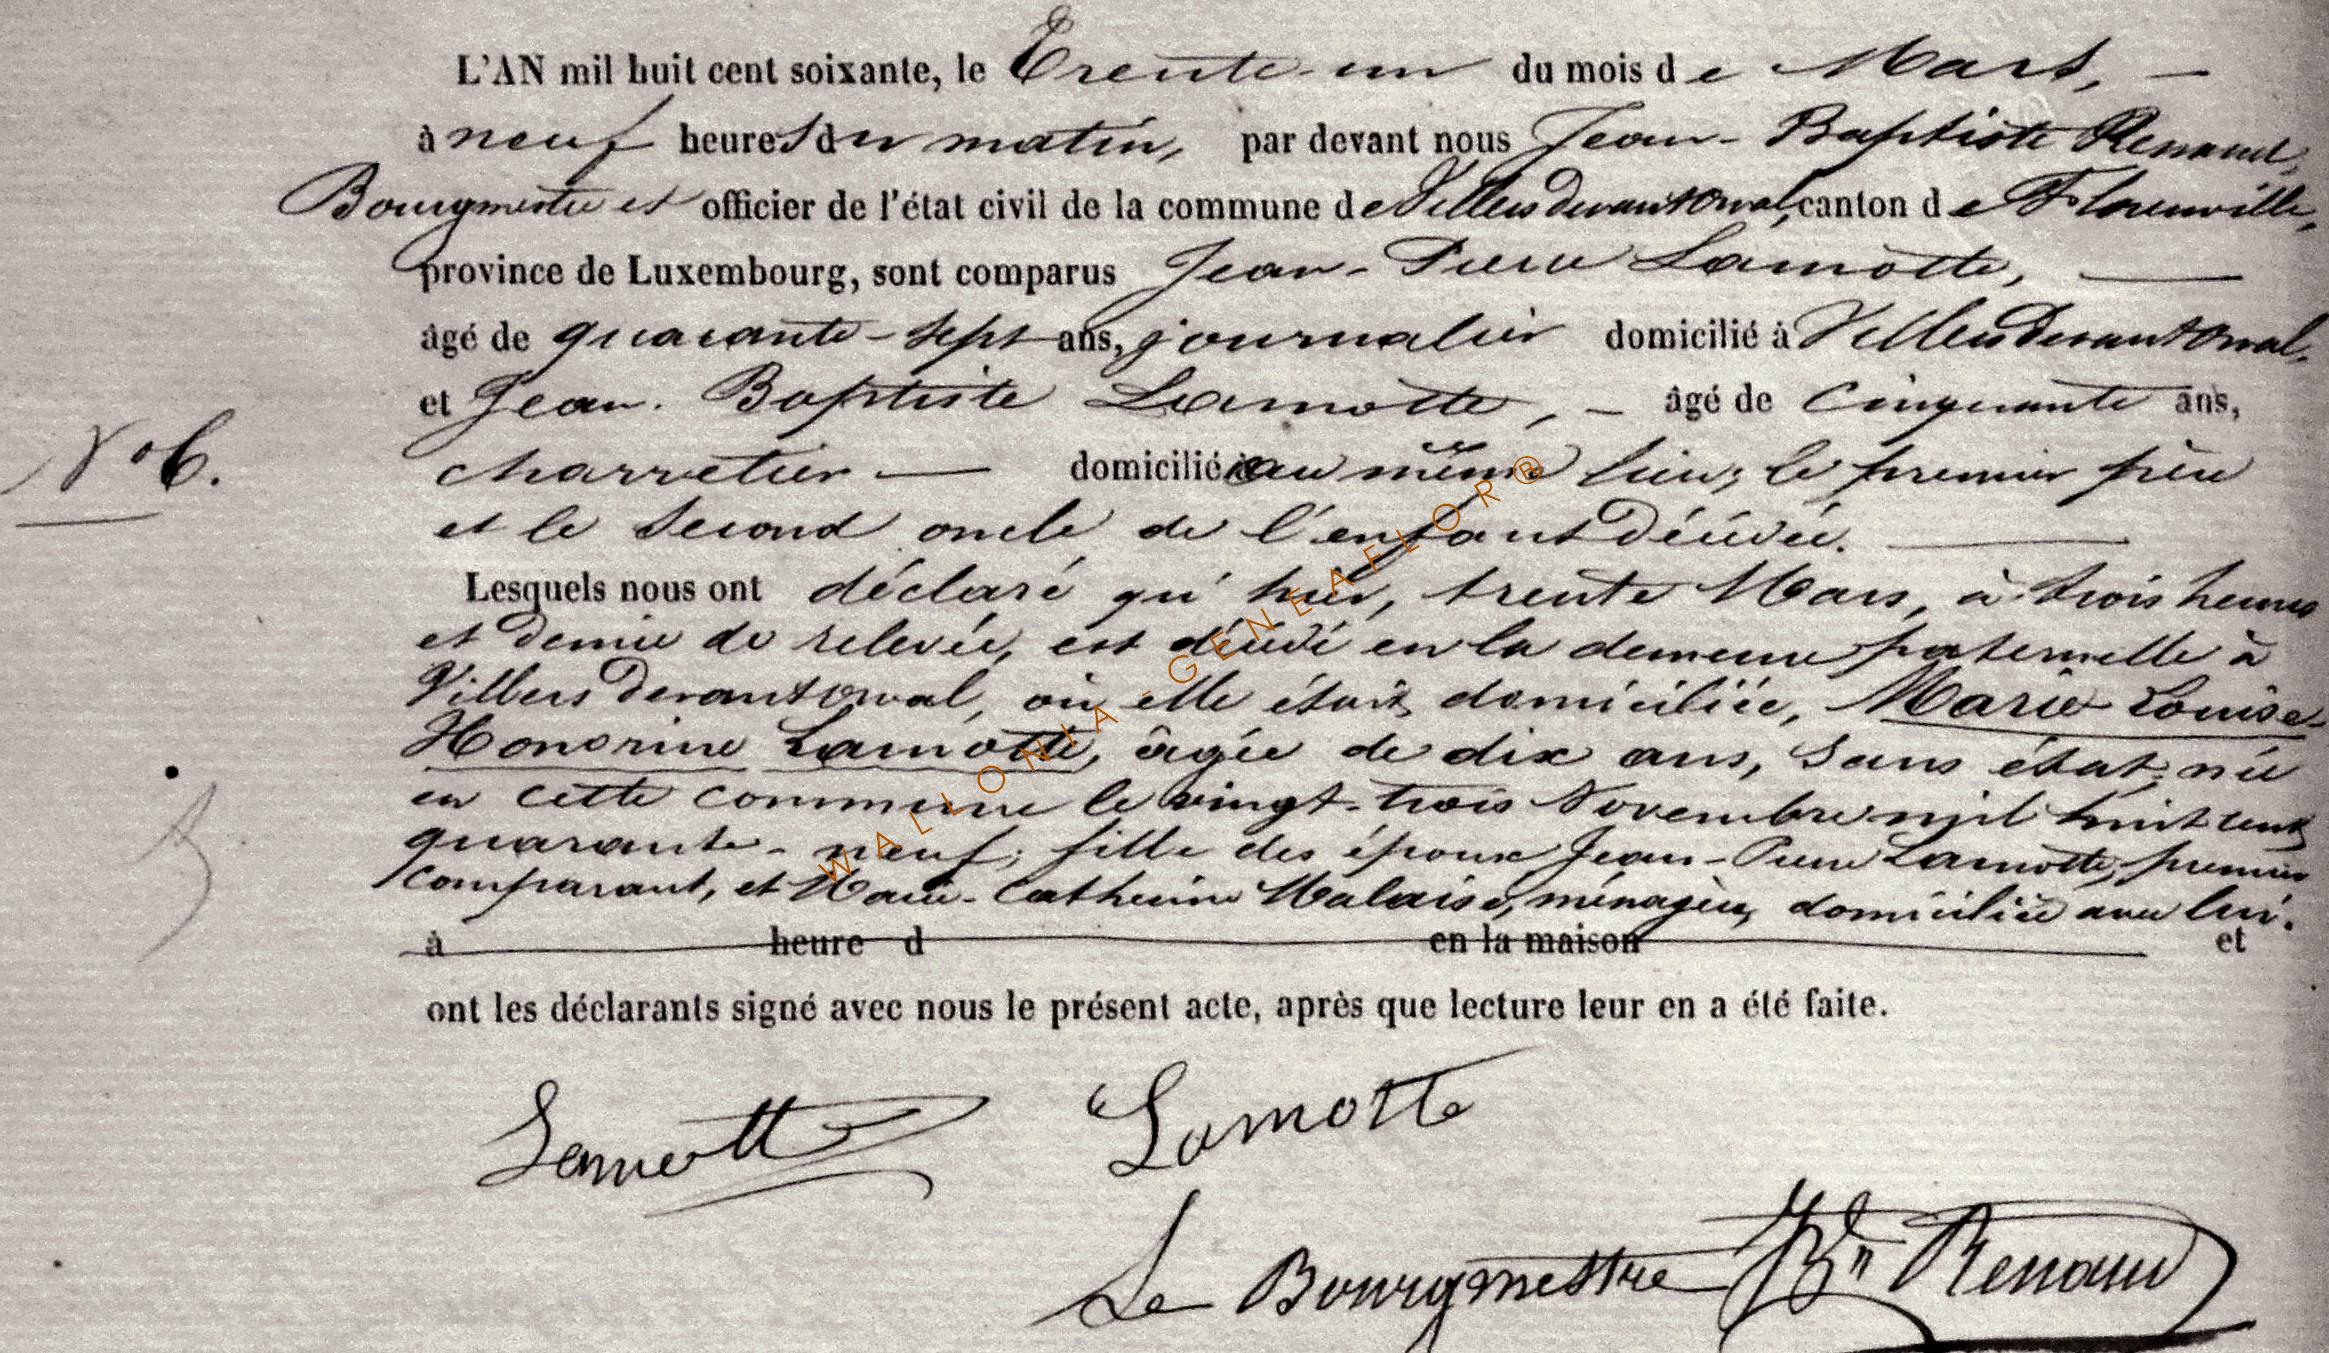 L'AN mil huit cent soixante, le Trente-un du mois de Mars,
à neuf heures du matin, par devant nous Jean-Baptiste Renaud,
Bourgmestre et officier de l'état civil de la commune de Villers devant Orval, canton de Florenville,
province de Luxembourg, sont comparus Jean-Pierre Lamotte,
âgé de quarante-sept ans, journalier domicilié à Villers devant Orval,
et Jean-Baptiste Lamotte, âgé de cinquante ans,
N° 6.
charretier domicilié au même lieu; le premier père
et le second oncle de l'enfant décédée.
Lesquels nous ont déclaré qu'hier, trente Mars, à trois heures
et demie de relevée, est décédé en la demeure paternelle à
Villers devant Orval, où elle était domiciliée, Marie Louise
Honorine Lamotte, âgée de dix ans, sans état, née
en cette commune le vingt-trois Novembre mil huit cent
quarante-neuf; fille des époux Jean-Pierre Lamotte, premier
comparant, et Marie-Catherine Malaise, ménagère, domiciliée avec lui.
à heure d en la maison et
ont les déclarants signé avec nous le présent acte, après que lecture leur en a été faite.
Lamotte Lamotte
Le Bourgmestre JBn Renaud
WALLONIA GENEAFLOR®